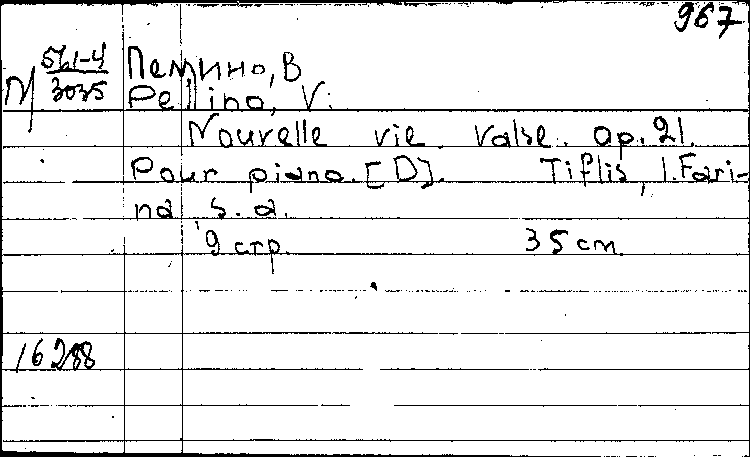 967
М 561-4
3035
Пемино, В
Pellino, V.
Nouvelle vie. Valse. op. 21.
Pour piano. [D]. Tiflis, I. Fari-
na s. a.
9 стр. 35 cm.
16288